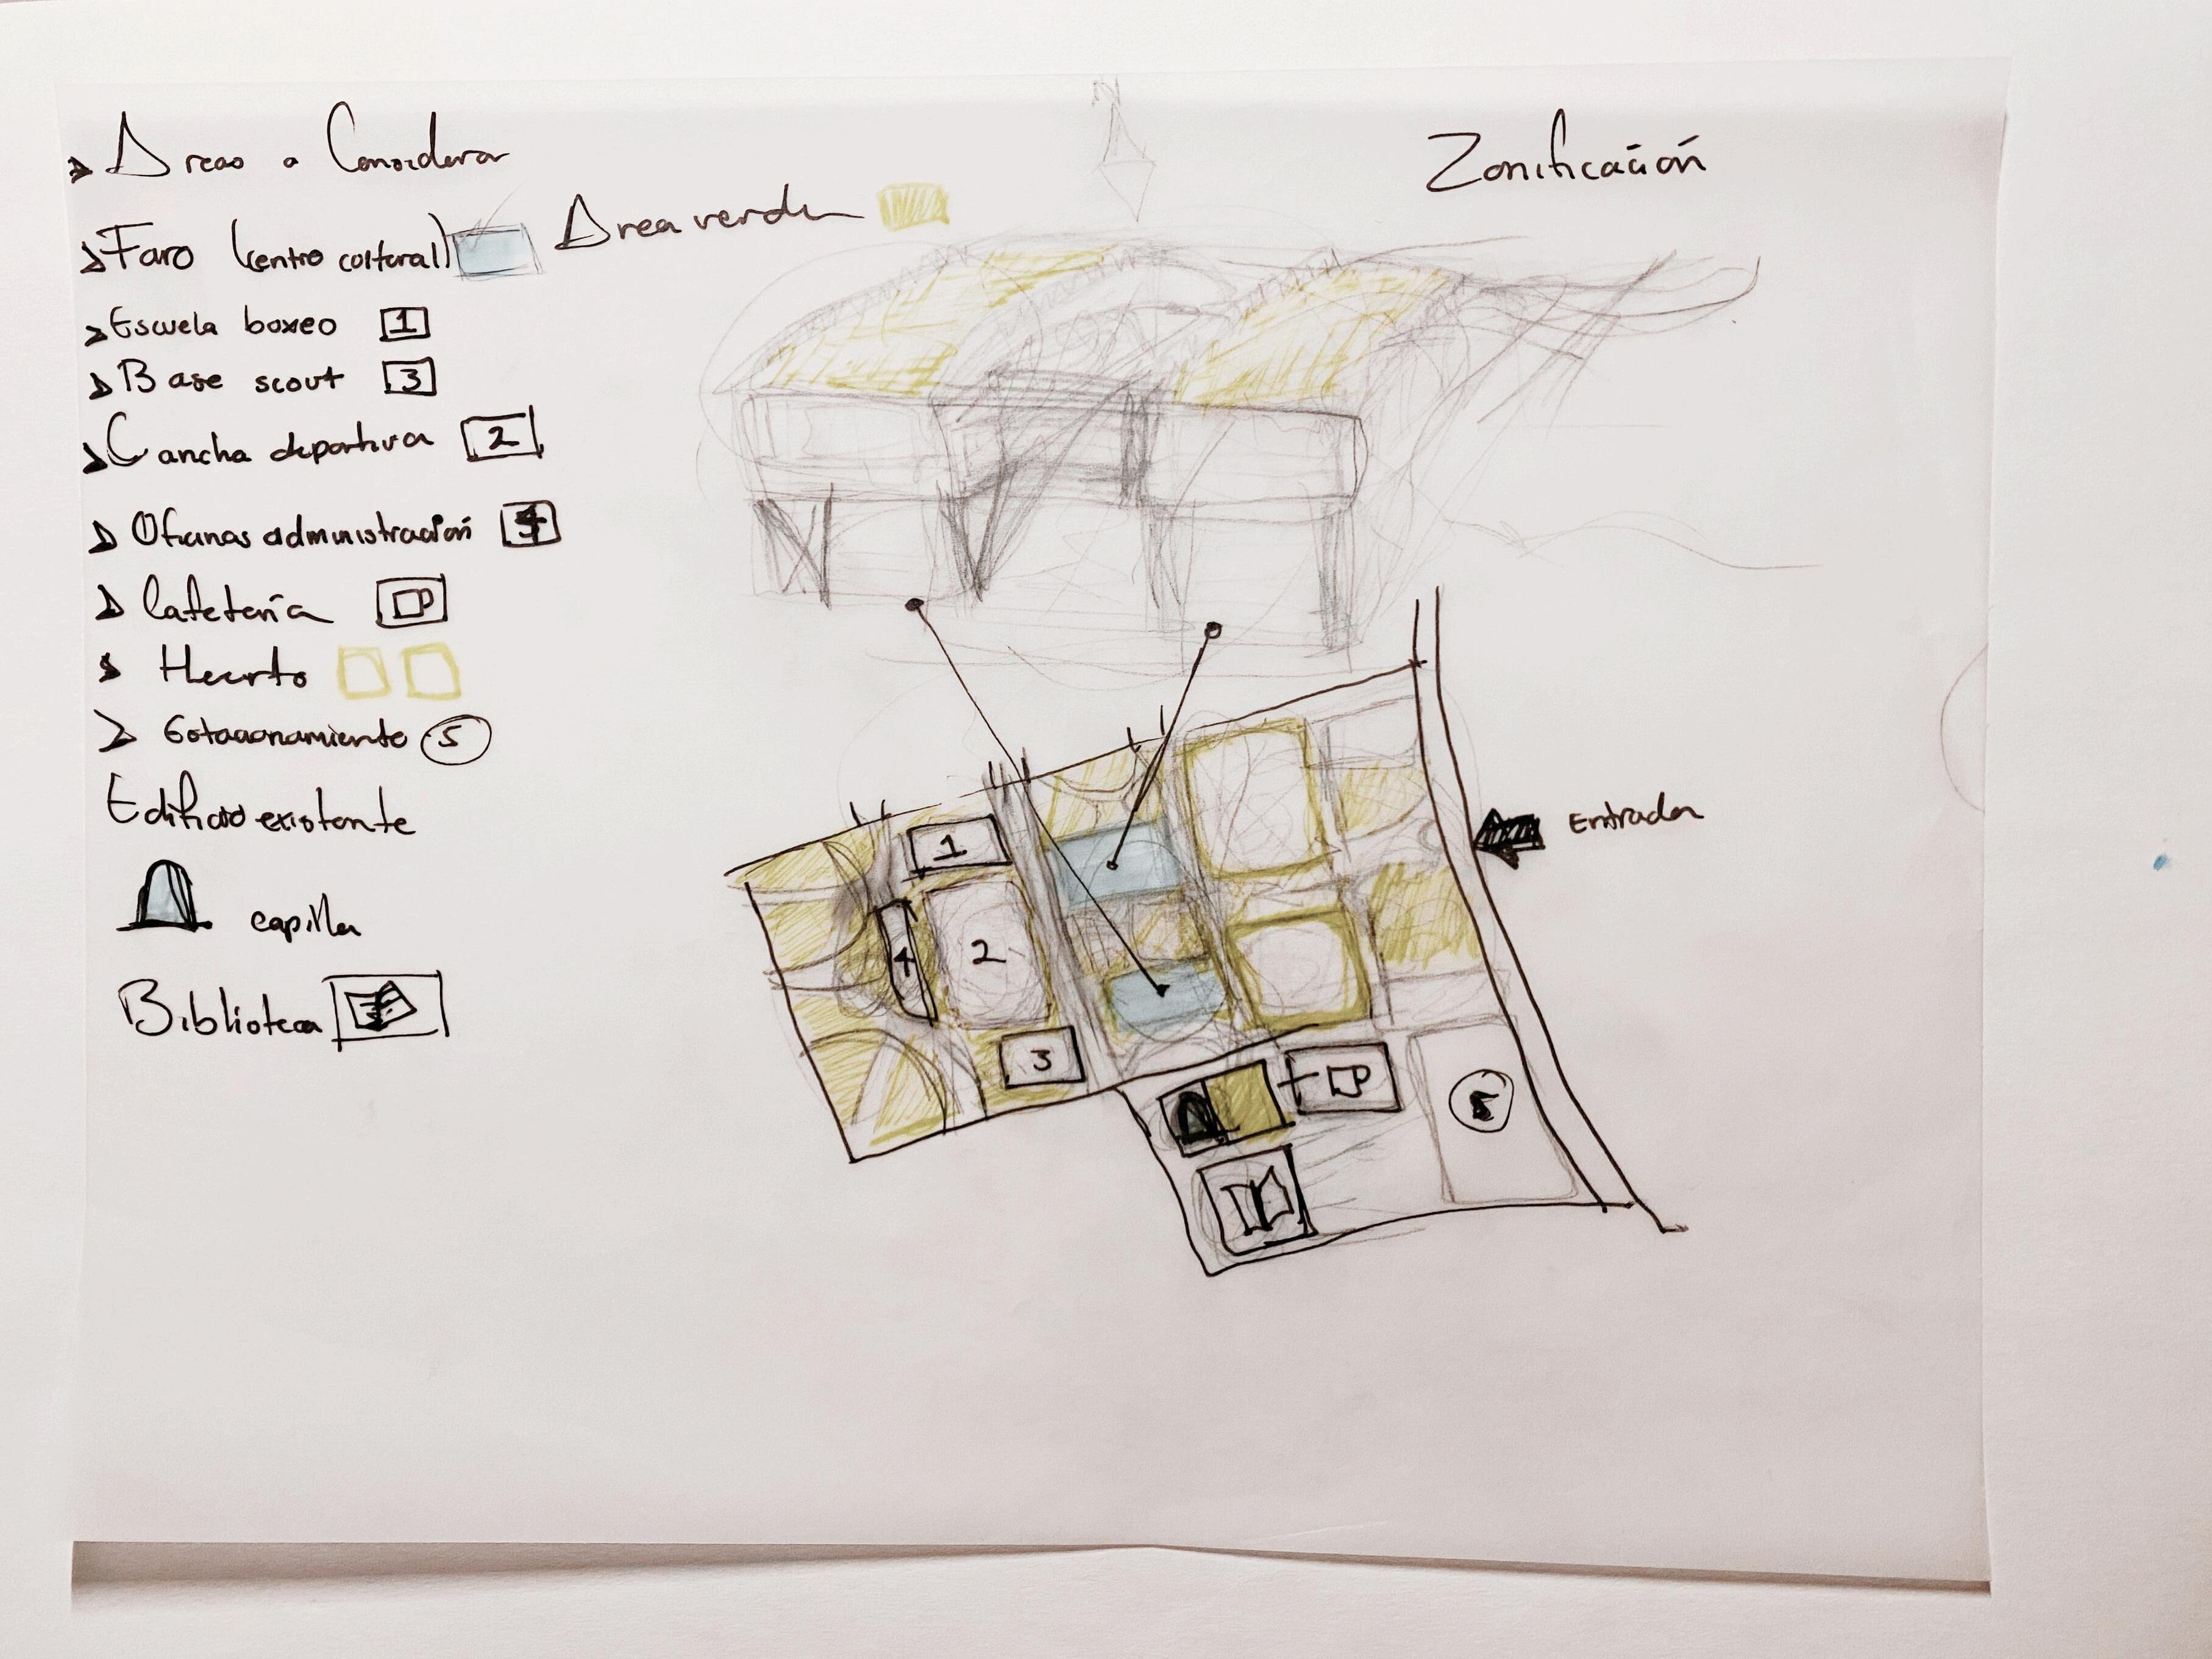 Areas a Considerar
Zonificación
Faro (centro cultural)
Area verde
Escuela boxeo 1
Base scout 3
Cancha deportiva 2
Oficinas administración 4
Cafetería
Huerto
Estacionamiento 5
Edificio existente
capilla
Biblioteca
Entrada
1
4
2
3
5